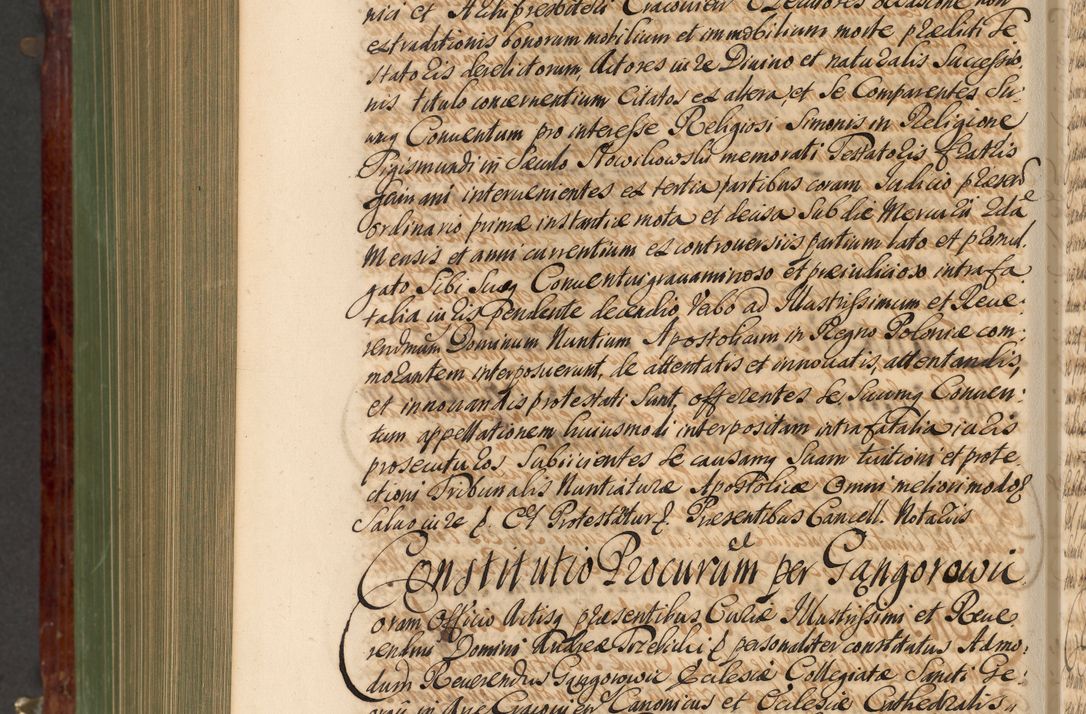 nici et Archipresbiteri Cracovien Executores occasione non
extraditionis bonorum mobilium et immobilium morte praediti Te
statoris derelictorum, Actores iure Divino et naturalis Successio,
nis titulo concernentium Citatos ex altera, et se Comparentes Su:
umq Conventum pro interesse Religiosi Simonis in Religione
Sigismundi in Saeculo Nowikowski memorati Testatoris fratris
germani intervenientes ex tertia partibus coram Judicio praesen
ordinario primae instantiae mota et decisa Sub die Mercurii 2da
Mensis et anni currentium ex controversiis partium lato et promul.
gato Sibi Suoq Conventui gravaminoso et praeiudicioso intra fa
talia iuris pendente decendio, Verbo ad Illustrissimum et Reve:
rendmum Dominum Nuntium Apostolicum in Regno Poloniae com:
morantem interposuerunt, de attentatis et innovatis, attentandis,
et innovandis protestati Sunt, offerentes se, Suumq Conven:
tum appellationem huiusmodi interpositam intra fatalia iuris
prosecuturos, Subiicientes se causamq Suam tuitioni et prote
ctioni Tribunalis Nuntiaturae Apostolicae Omni meliori modo
Salvo iure p. Et Protestatur p. Praesentibus Cancell. Notariis
Constitutio Procurum per Gąngorowic
Coram Officio Actisq praesentibus Curiae Illustrissimi et Reve
rendmi Domini Andreae Trzebicki p personaliter constitutus Admo:
dum Reverendus Gąngorowic Ecclesiae Collegiatae Sancti Ge:
orgii in Arce Cracovien Canonicus et Ecclesiae Cathedralis